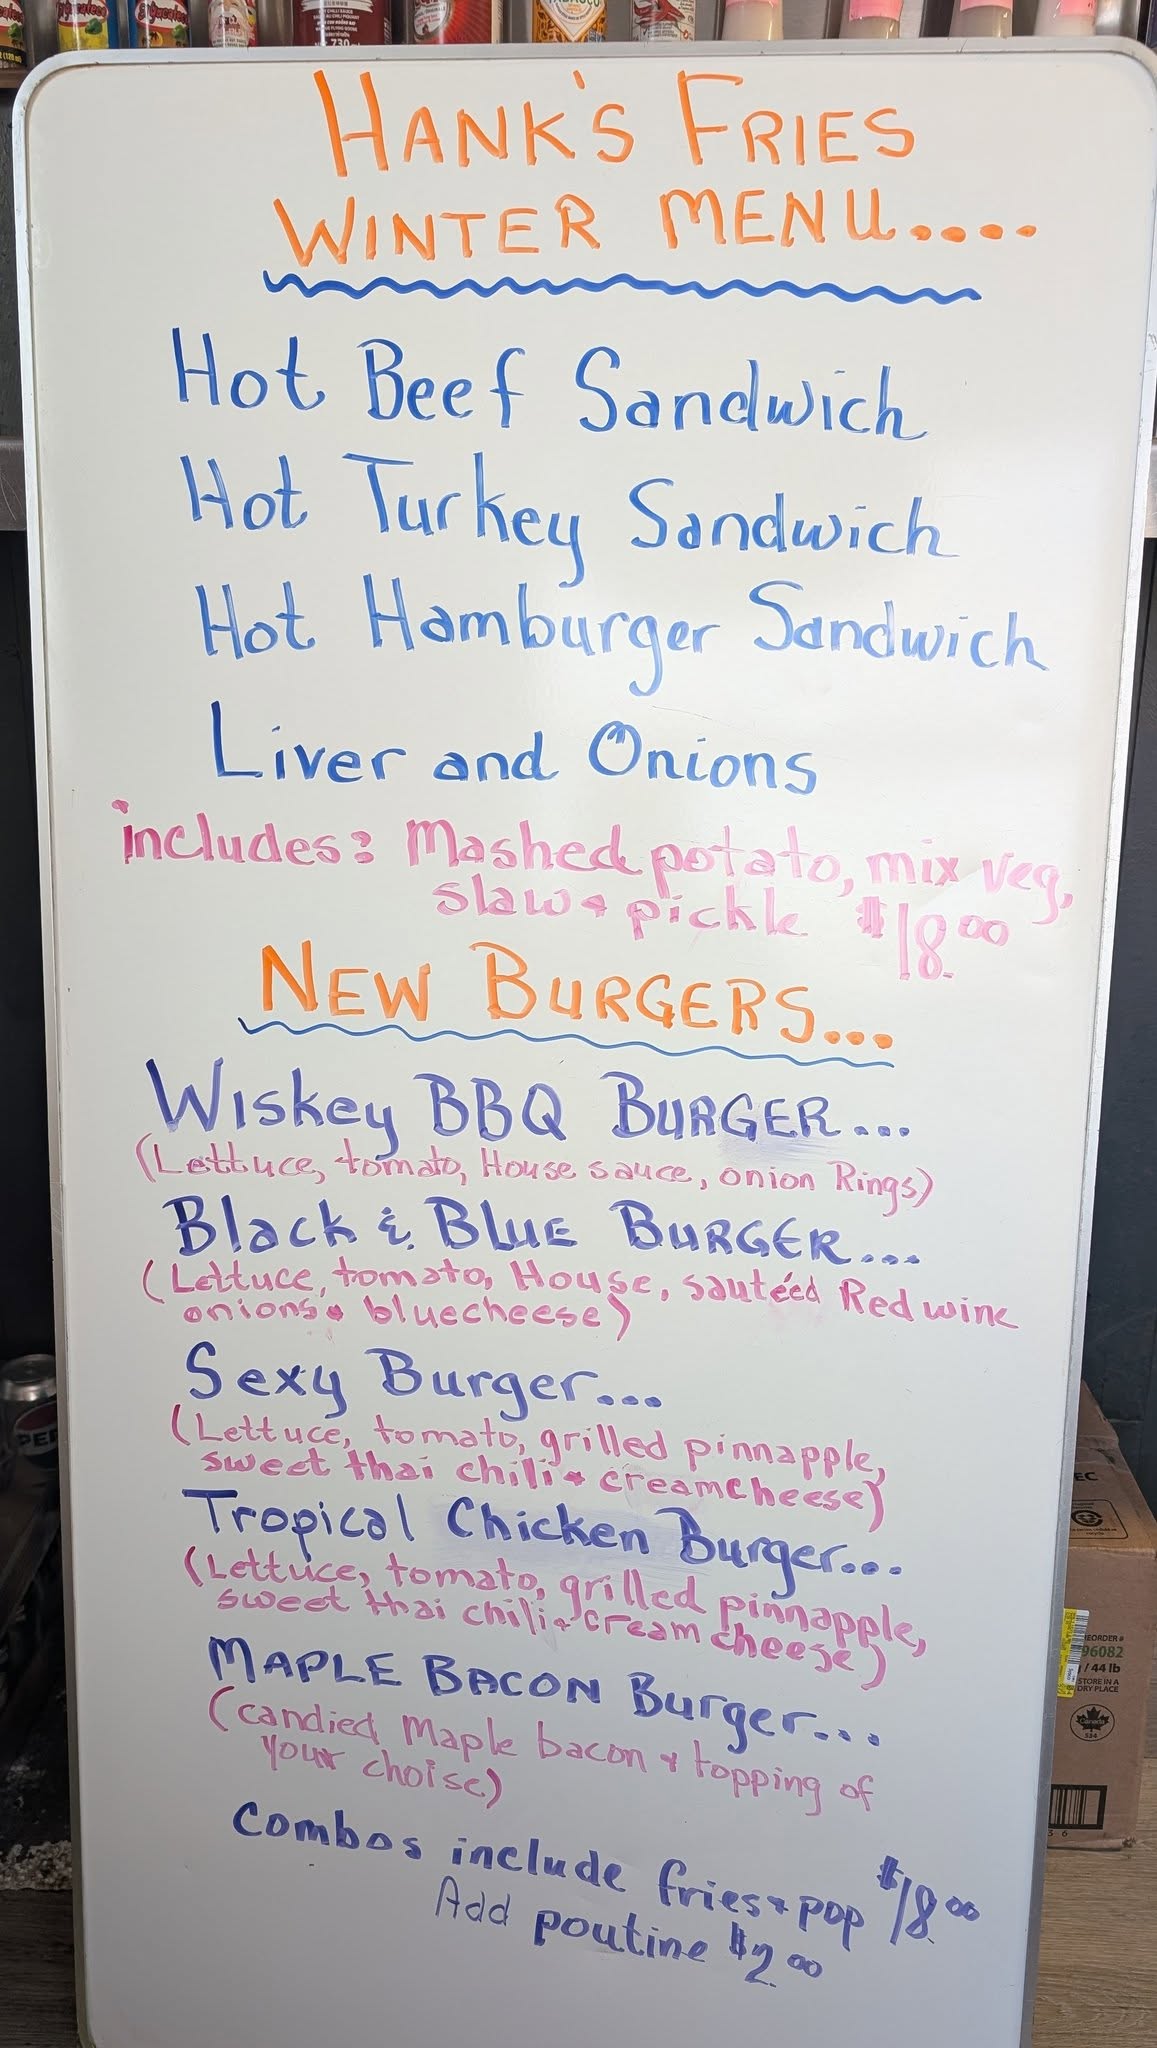 HANK'S FRIES
WINTER MENU....
Hot Beef Sandwich
Hot Turkey Sandwich
Hot Hamburger Sandwich
Liver and Onions
includes: Mashed potato, mix veg,
slaw & pickle $18.00
NEW BURGERS...
Wiskey BBQ BURGER...
(Lettuce, tomato, House sauce, onion Rings)
Black & BLUE BURGER...
(Lettuce, tomato, House, sautéed Red wine
onions & bluecheese)
Sexy Burger...
(Lettuce, tomato, grilled pinnapple,
sweet thai chili & creamcheese)
Tropical Chicken Burger...
(Lettuce, tomato, grilled pinnapple,
sweet thai chili & cream cheese)
MAPLE BACON Burger...
(candied Maple bacon & topping of
your choise)
Combos include fries & pop $18.00
Add poutine $2.00
TABASCO
730
PEP
EC
REORDER #
96082
/ 44 lb
STORE IN A
DRY PLACE
Canada